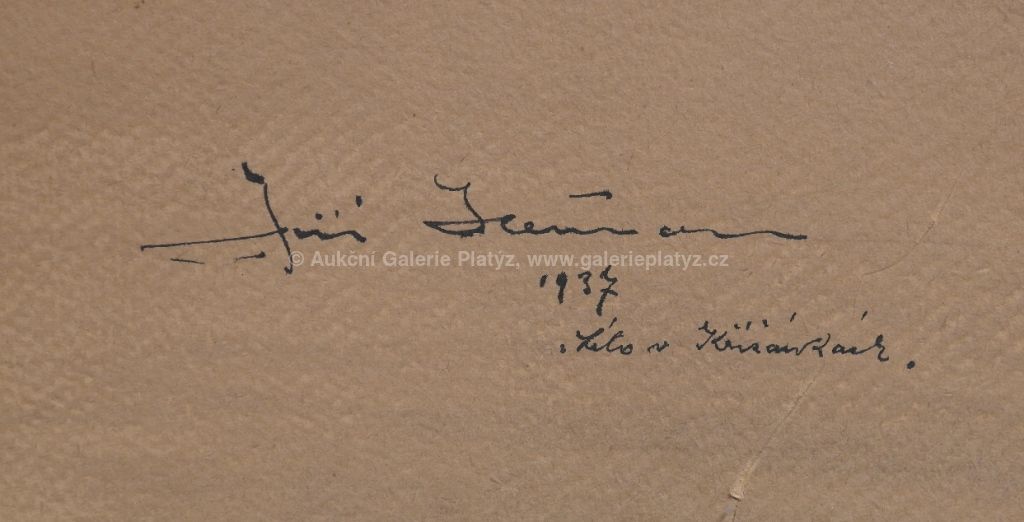 Jiří Heřman
© Aukční Galerie Platýz, www.galerieplatyz.cz
1937
Léto v Křižánkách.